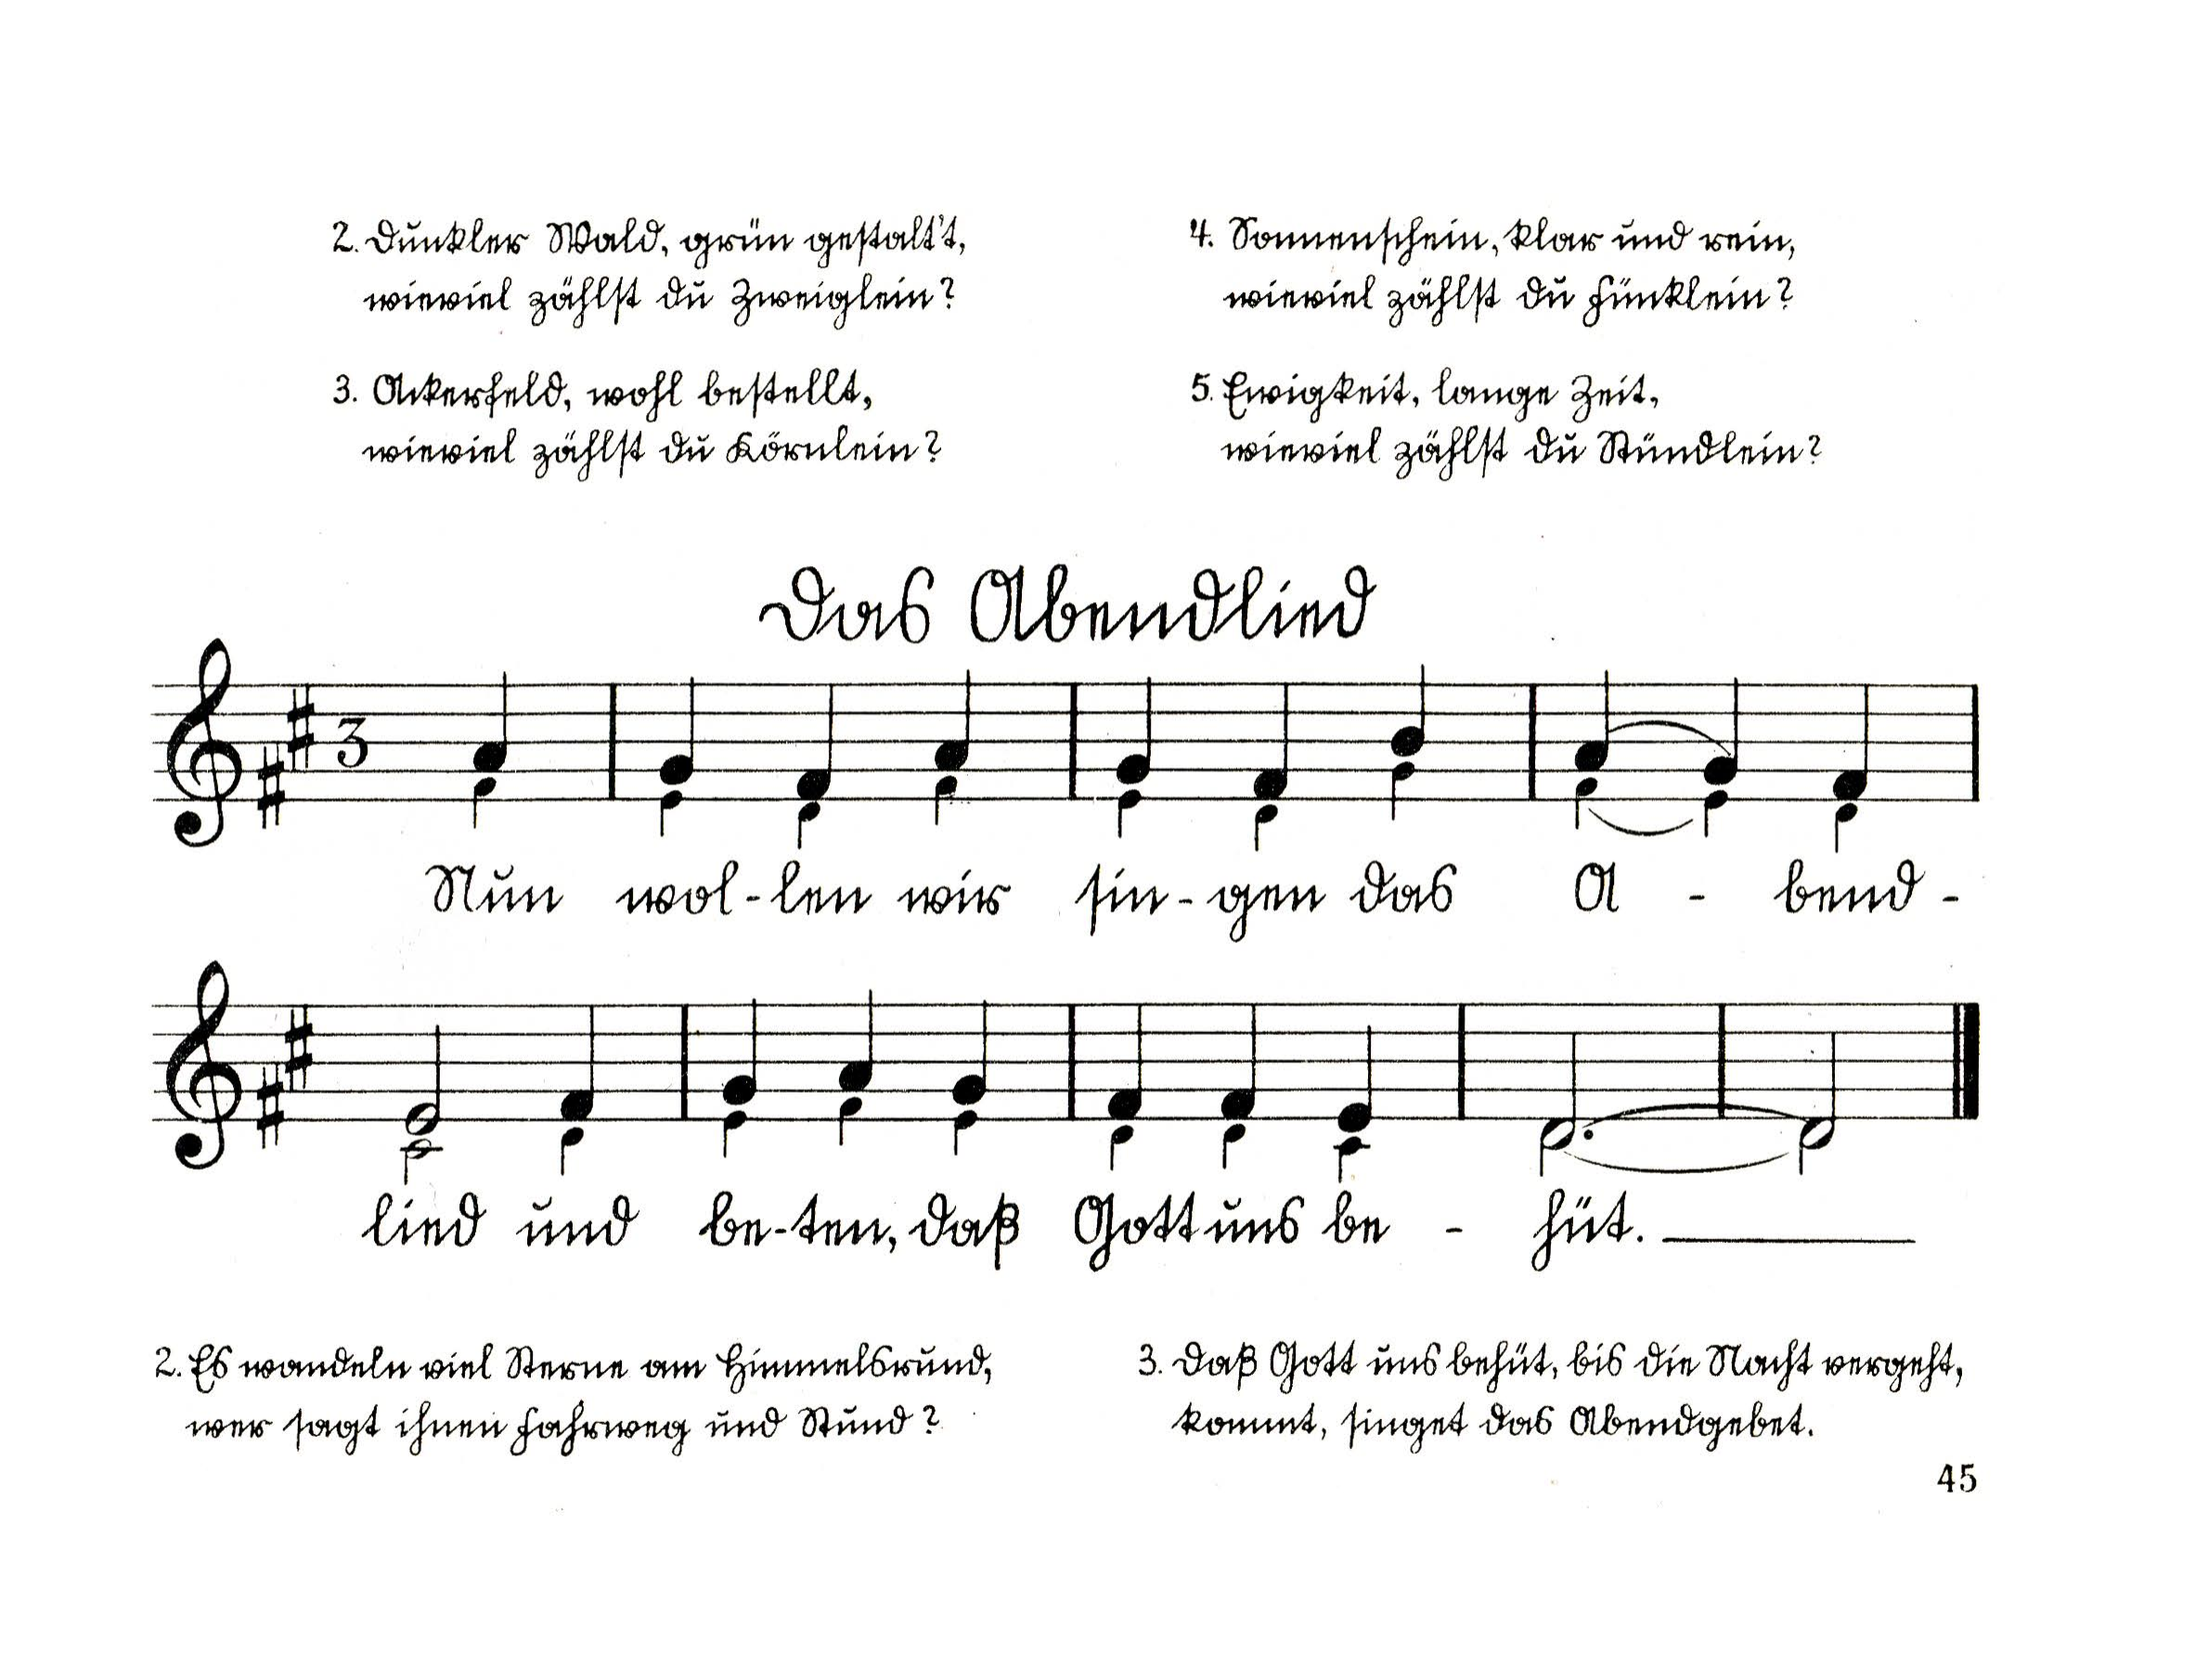 2. Dunkler Wald, grün gestalt't,
wieviel zählst du Zweiglein?
3. Ackerfeld, wohl bestellt,
wieviel zählst du Körnlein?
4. Sonnenschein, klar und rein,
wieviel zählst du Fünklein?
5. Ewigkeit, lange Zeit,
wieviel zählst du Stündlein?
Das Abendlied
3
Nun wol-len wir sin-gen das A - bend-
lied und be-ten, daß Gott uns be - hüt.
2. Es wandeln viel Sterne am Himmelsrund,
wer sagt ihnen Fahrweg und Stund?
3. Daß Gott uns behüt, bis die Nacht vergeht,
kommt, singet das Abendgebet.
45